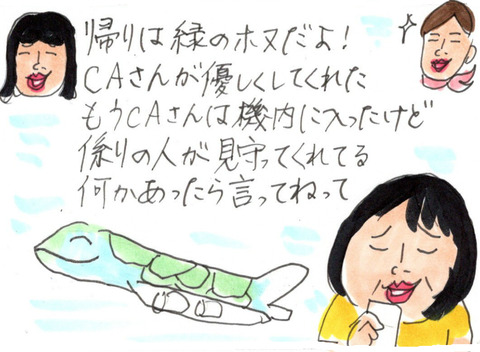 帰りは緑のホヌだよ!
CAさんが優しくしてくれた
もうCAさんは機内に入ったけど
係りの人が見守ってくれてる
何かあったら言ってねって